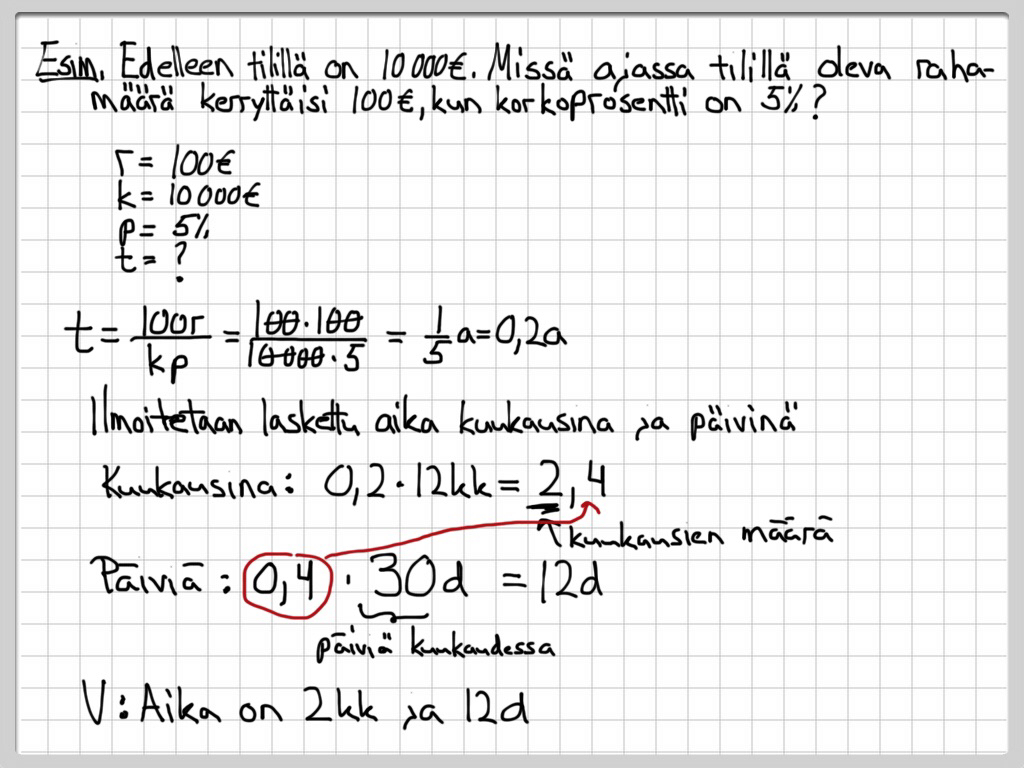 Esim. Edelleen tilillä on 10 000€. Missä ajassa tilillä oleva raha-
määrä kerryttäisi 100€, kun korkoprosentti on 5%?
r = 100€
k = 10 000€
p = 5%
t = ?
t = 100r/kp = 100·100/10 000·5 = 1/5 a = 0,2a
Ilmoitetaan laskettu aika kuukausina ja päivinä
Kuukausina: 0,2·12kk = 2,4
kuukausien määrä
Päiviä: 0,4 · 30d = 12d
päiviä kuukaudessa
V: Aika on 2kk ja 12d